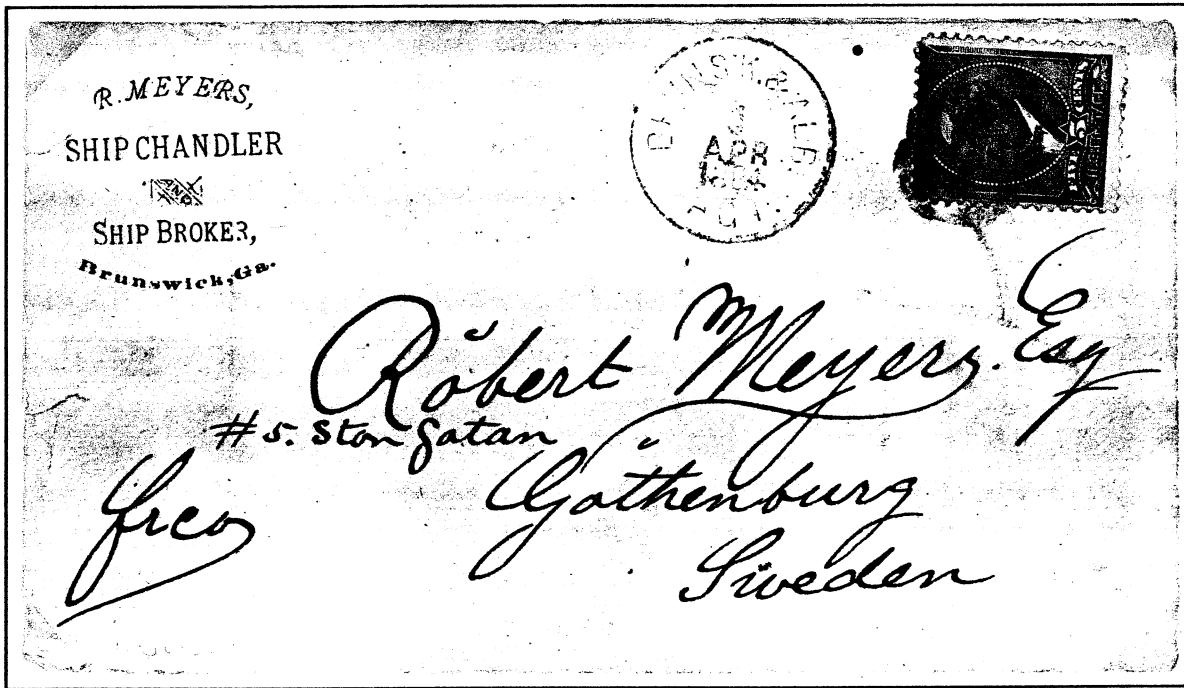 R. MEYERS,
SHIP CHANDLER
SHIP BROKER,
Brunswick, Ga.
APR
Robert Meyers. Esq
#5. Ston gatan
Gothenburg
Sweden
frco